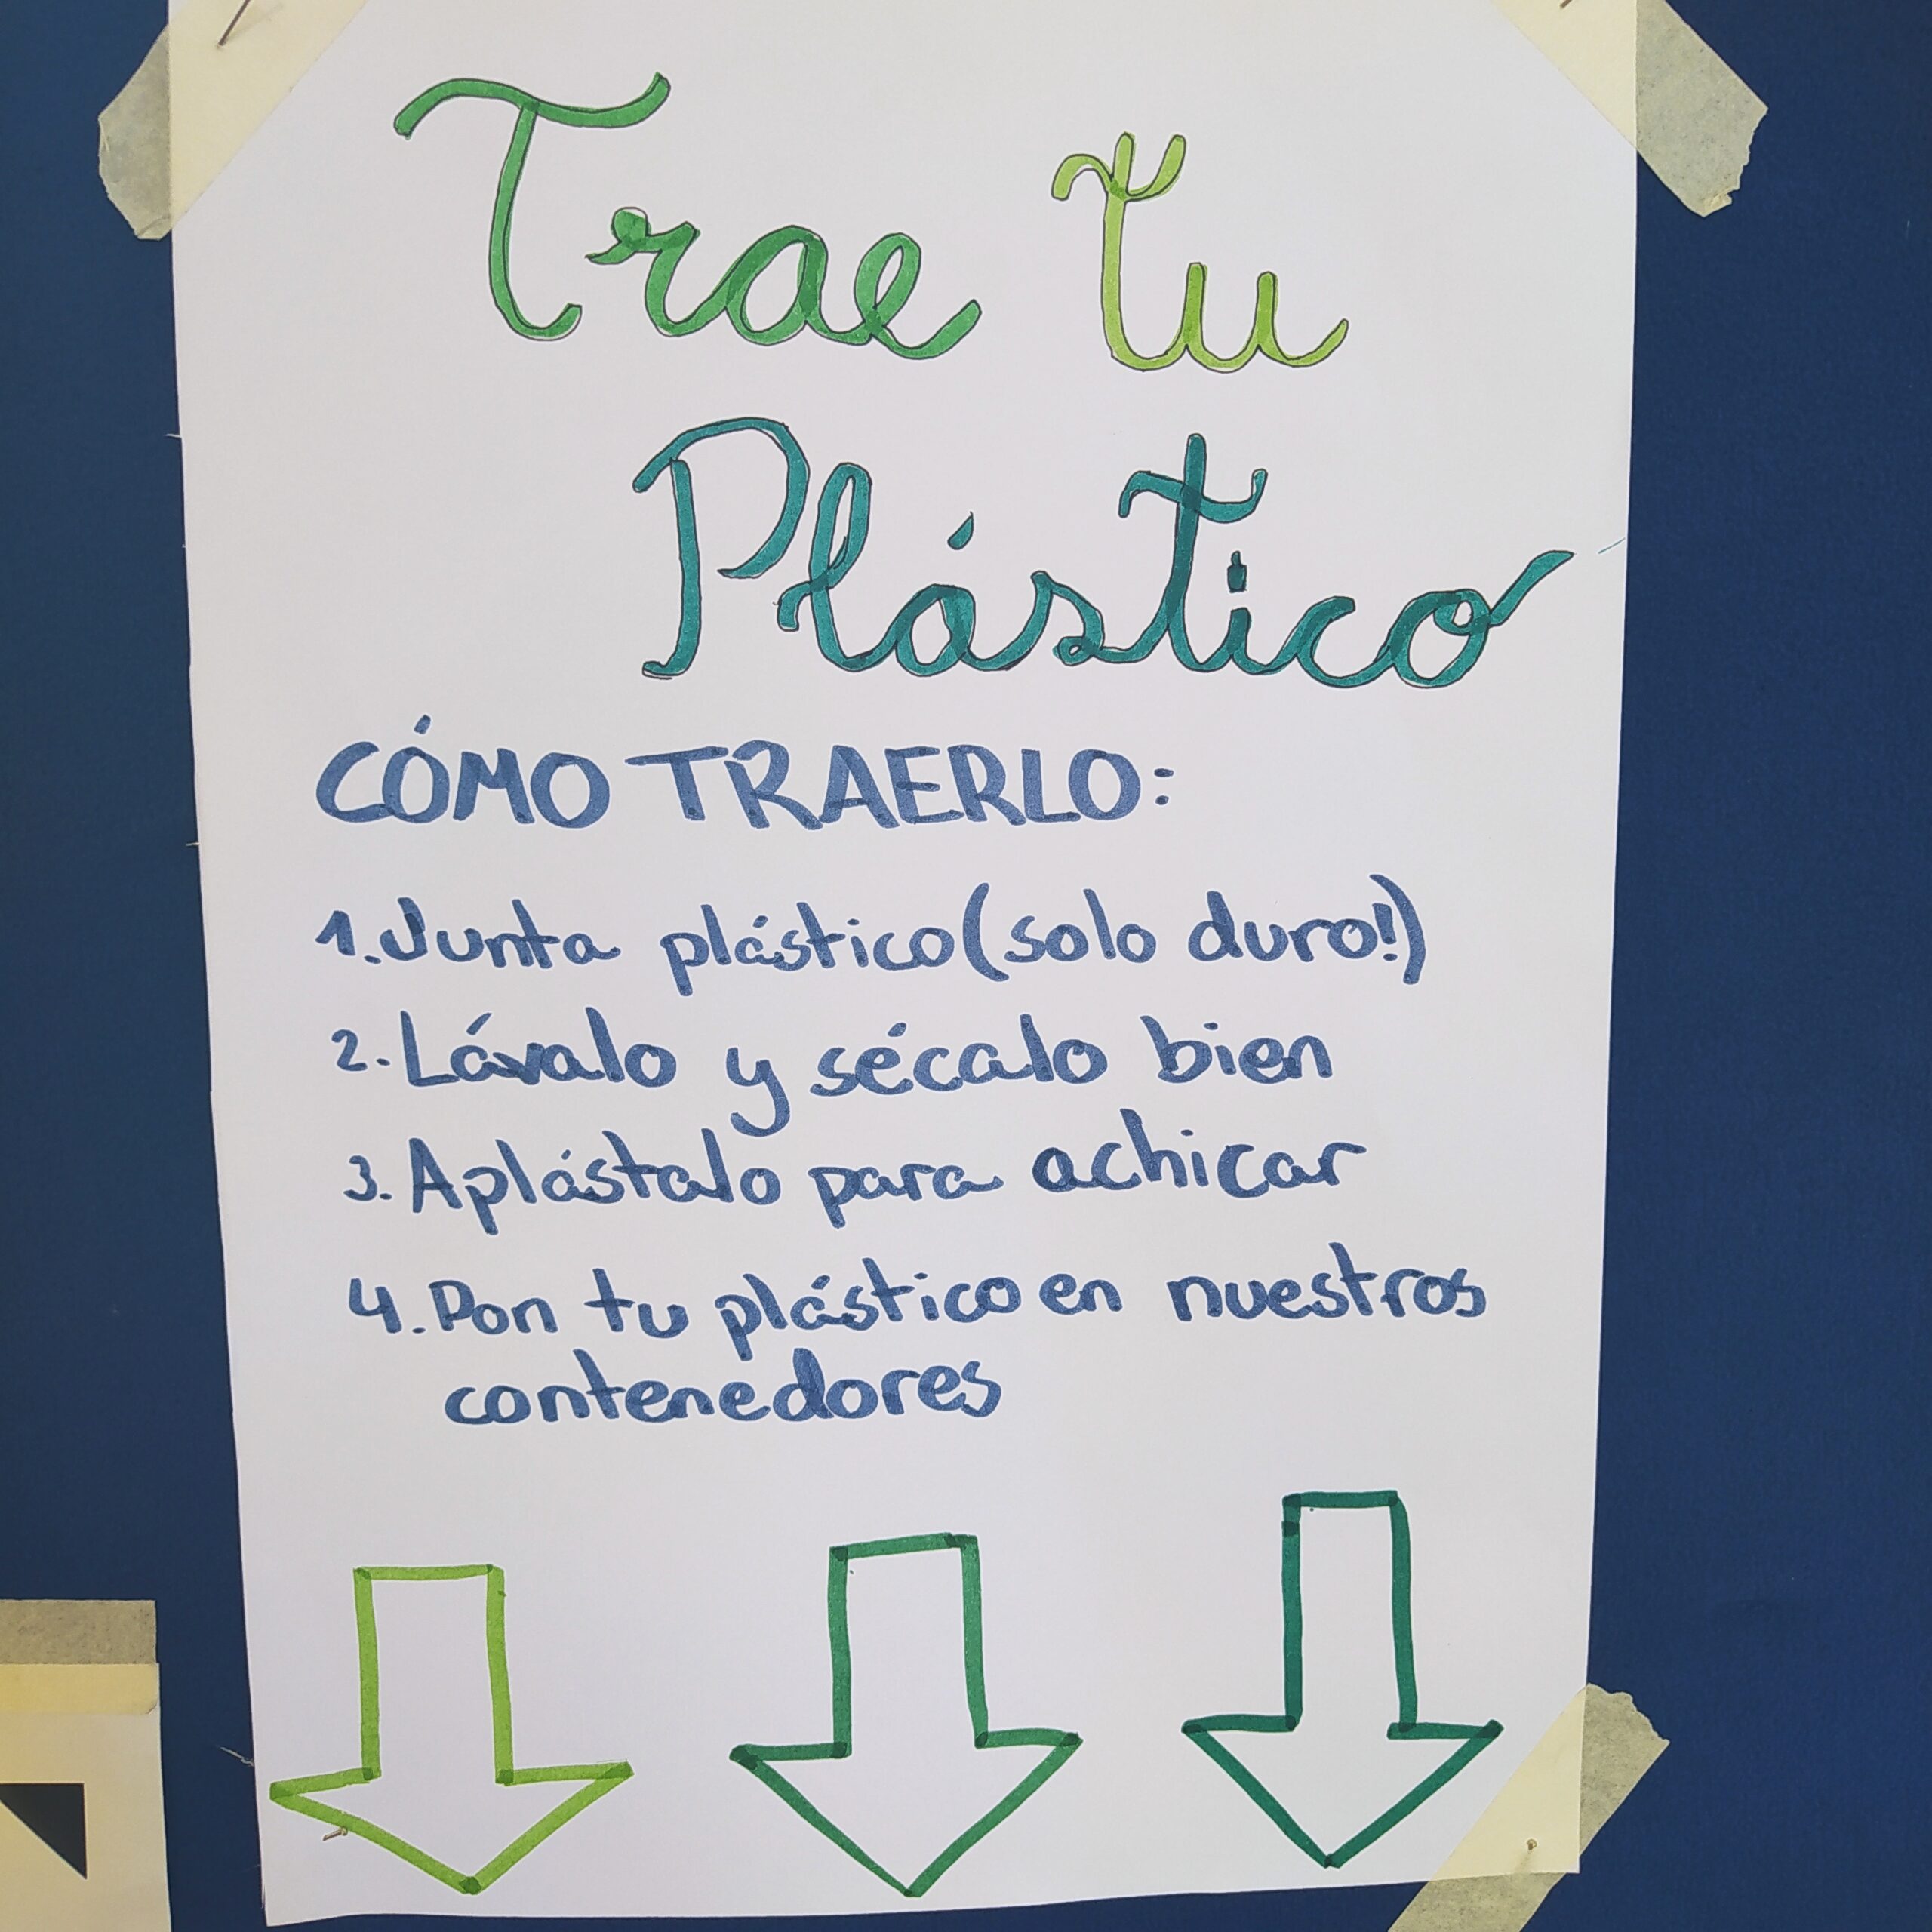 Trae tu
Plástico
CÓMO TRAERLO:
1. Junta plástico (solo duro!)
2. Lávalo y sécalo bien
3. Aplástalo para achicar
4. Pon tu plástico en nuestros
contenedores